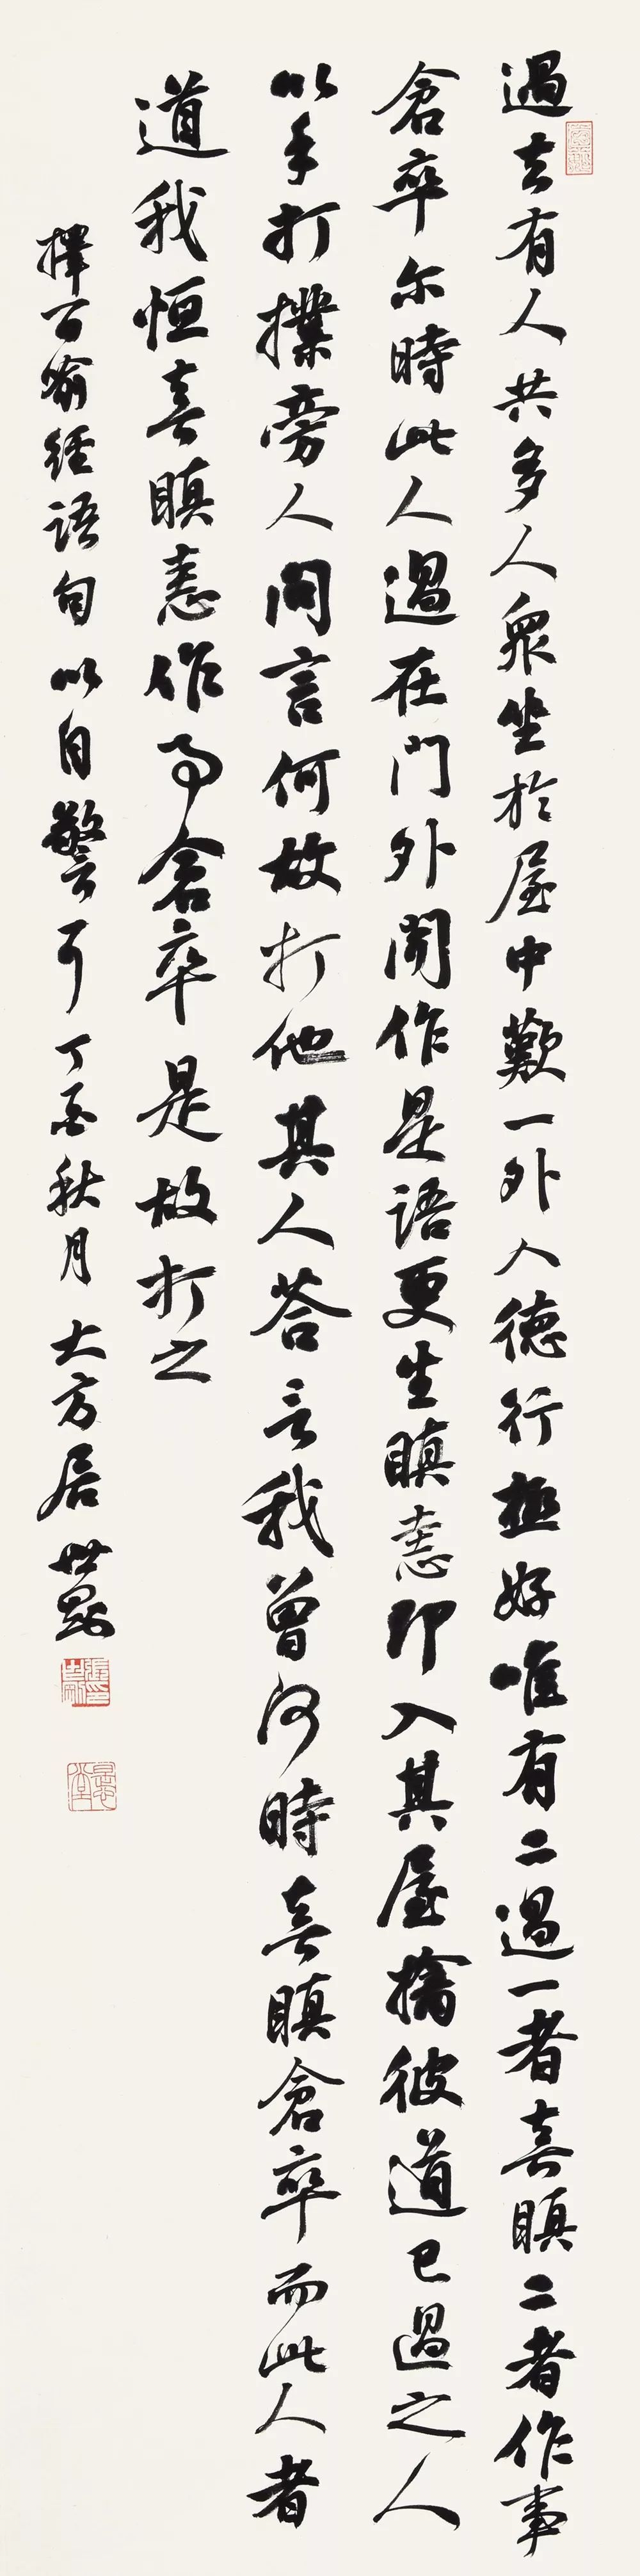 過去有人共多人眾坐於屋中歎一外人德行極好唯有二過一者喜瞋二者作事
倉卒尔時此人過在門外聞作是語更生瞋恚即入其屋擒彼道己過之人
以手打撲旁人問言何故打他其人荅言我曾何時喜瞋倉卒而此人者
道我恒喜瞋恚作事倉卒是故打之
擇百喻經語句以自警耳丁酉秋月大方居世剛